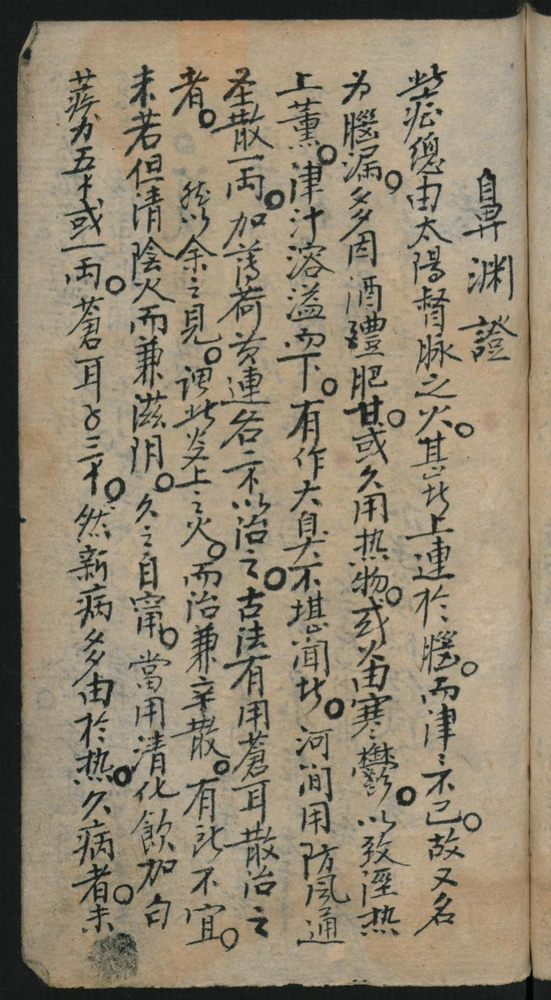 鼻渊證
此症總由太陽督脉之火。甚者上連於腦。而津〻不已。故又名
为腦漏。多因酒醴肥甘。或久用热物。或火由寒鬱。以致溼热
上薰。津汁溶溢而下。有作大臭不堪闻者。河间用防风通
圣散一両。加薄荷黄連各二不以治之。古法有用蒼耳散治之
者。然以余之見。谓此炎上之火。而治兼辛散。有所不宜。
未若但清陰火而兼滋阴。久之自甯。當用清化飲加白
蒺藜五才或一両。蒼耳子三才。然新病多由於热。久病者未